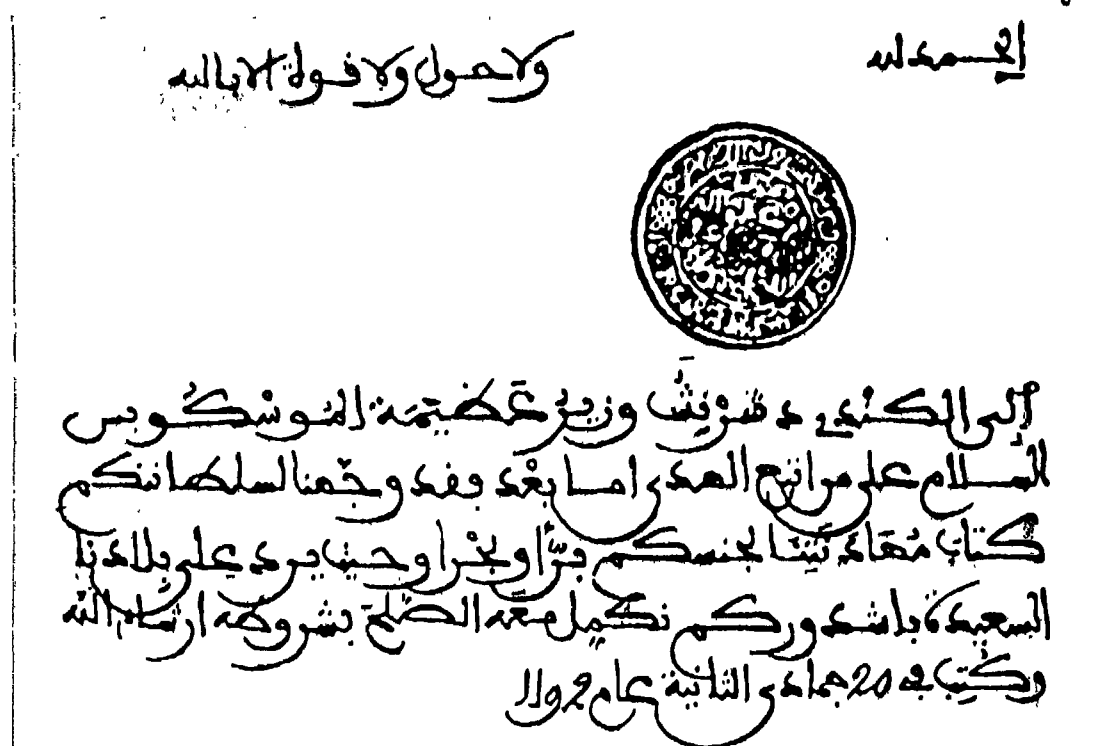 الحمد لله ولا حول ولا قوة الا بالله
إلى الكندي د شرنيشب وزير عظيمة الموسكوبس
السلام على من اتبع الهدى اما بعد فقد وجهنا لسلطانتكم
كتاب مهادنتنا لجنسكم برًّا وبحرا وحيث يرد على بلادنا
السعيدة باشدوركم نكمل معه الصلح بشروطه ان شاء الله
وكتب في 20 جمادى الثانية عام 1192